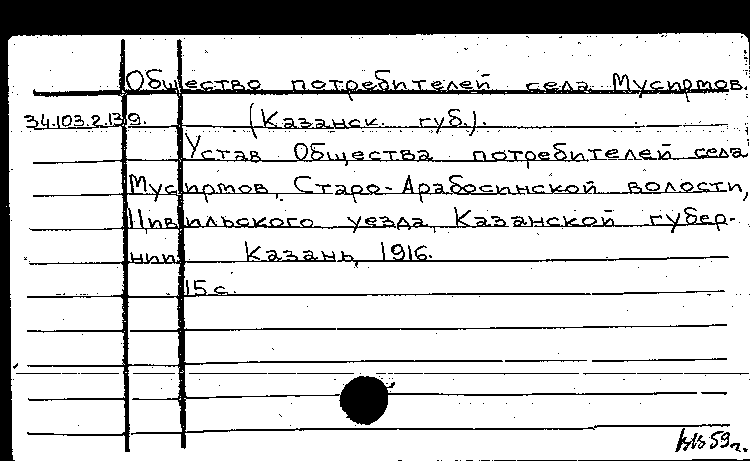 Общество потребителей села Мусиртов.
34.103.2.139. (Казанск. губ.).
Устав Общества потребителей села
Мусиртов, Старо-Арабосинской волости,
Цивильского уезда, Казанской губер-
нии. Казань, 1916.
15 с.
59 г.